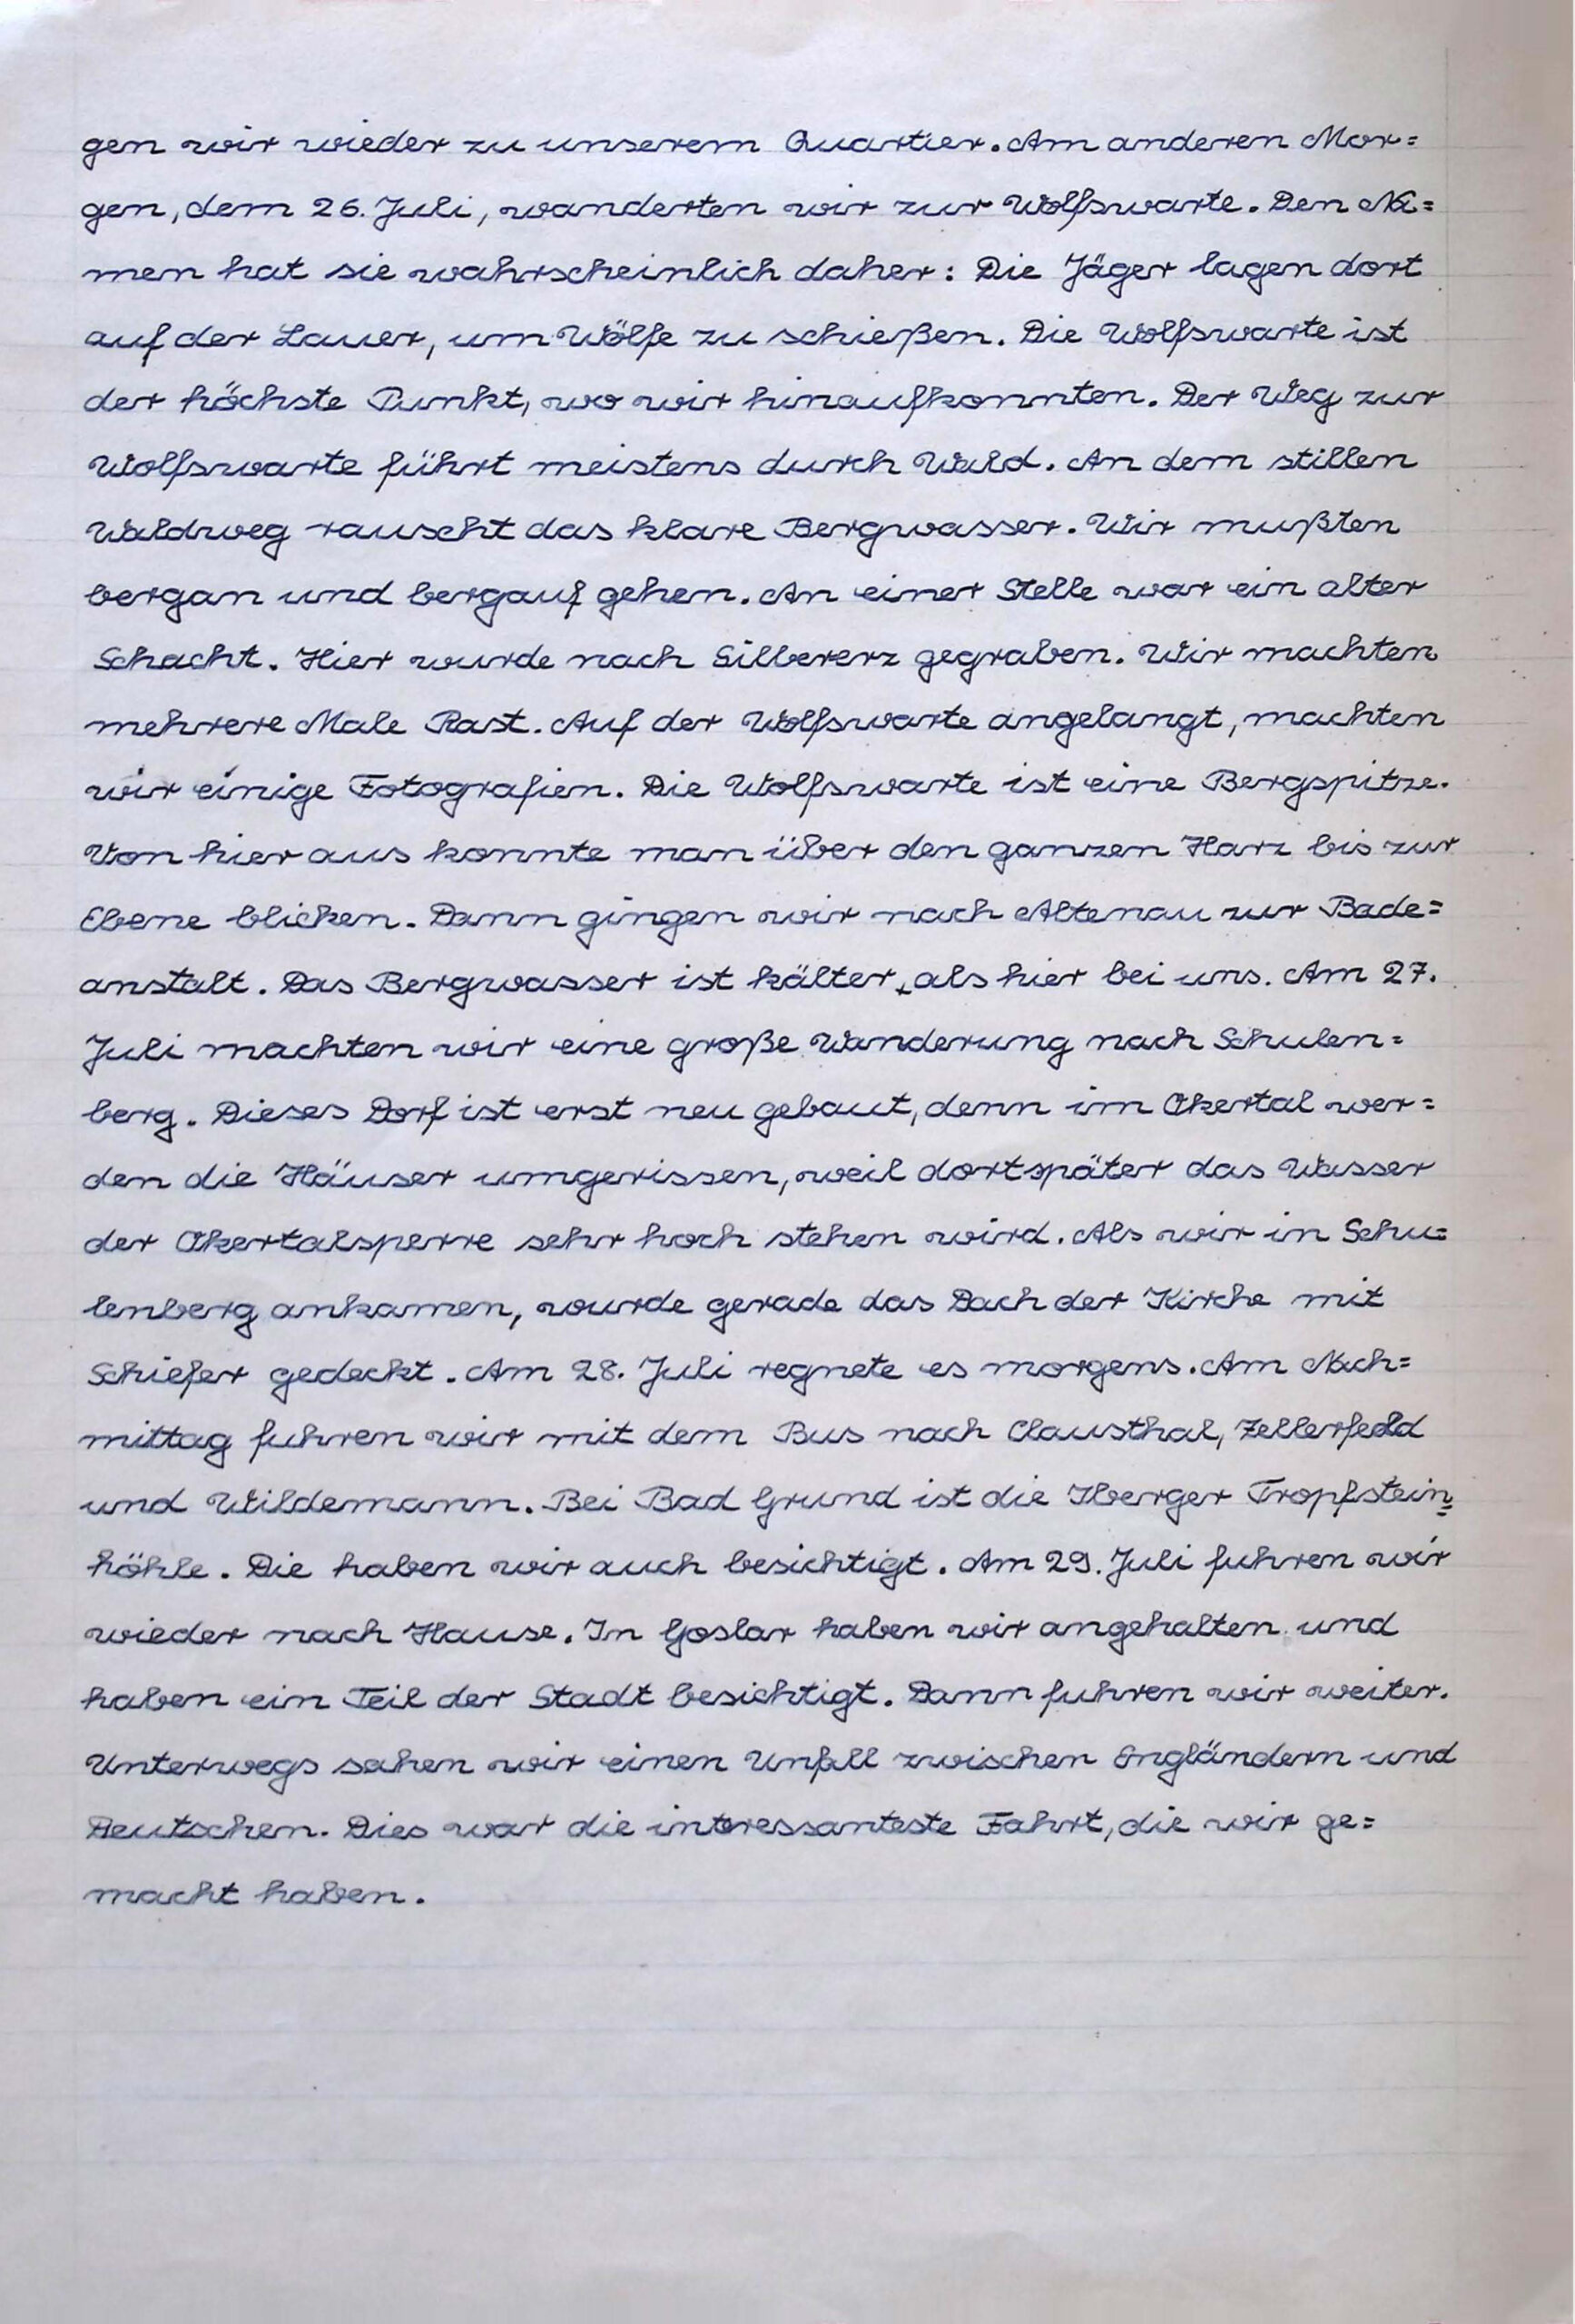 gen wir wieder zu unserem Quartier. Am anderen Mor=
gen, dem 26. Juli, wanderten wir zur Wolfswarte. Den Na=
men hat sie wahrscheinlich daher: Die Jäger lagen dort
auf der Lauer, um Wölfe zu schießen. Die Wolfswarte ist
der höchste Punkt, wo wir hinaufkonnten. Der Weg zur
Wolfswarte führt meistens durch Wald. An dem stillen
Waldweg rauscht das klare Bergwasser. Wir mußten
bergan und bergauf gehen. An einer Stelle war ein alter
Schacht. Hier wurde nach Silbererz gegraben. Wir machten
mehrere Male Rast. Auf der Wolfswarte angelangt, machten
wir einige Fotografien. Die Wolfswarte ist eine Bergspitze.
Von hier aus konnte man über den ganzen Harz bis zur
Ebene blicken. Dann gingen wir nach Altenau zur Bade=
anstalt. Das Bergwasser ist kälter, als hier bei uns. Am 27.
Juli machten wir eine große Wanderung nach Schulen=
berg. Dieses Dorf ist erst neu gebaut, denn im Okertal wer=
den die Häuser umgerissen, weil dort später das Wasser
der Okertalsperre sehr hoch stehen wird. Als wir in Schu=
lenberg ankamen, wurde gerade das Dach der Kirche mit
Schiefer gedeckt. Am 28. Juli regnete es morgens. Am Nach=
mittag fuhren wir mit dem Bus nach Clausthal, Zellerfeld
und Wildemann. Bei Bad Grund ist die Iberger Tropfstein=
höhle. Die haben wir auch besichtigt. Am 29. Juli fuhren wir
wieder nach Hause. In Goslar haben wir angehalten und
haben ein Teil der Stadt besichtigt. Dann fuhren wir weiter.
Unterwegs sahen wir einen Unfall zwischen Engländern und
Deutschen. Dies war die interessanteste Fahrt, die wir ge=
macht haben.